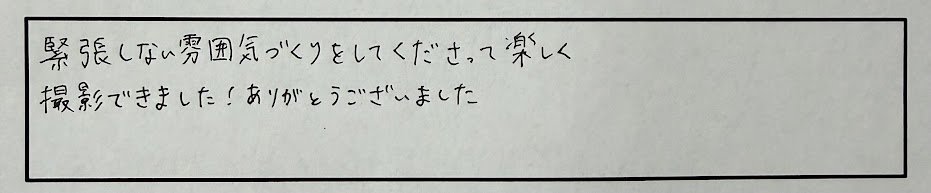 緊張しない雰囲気づくりをしてくださって楽しく
撮影できました！ありがとうございました